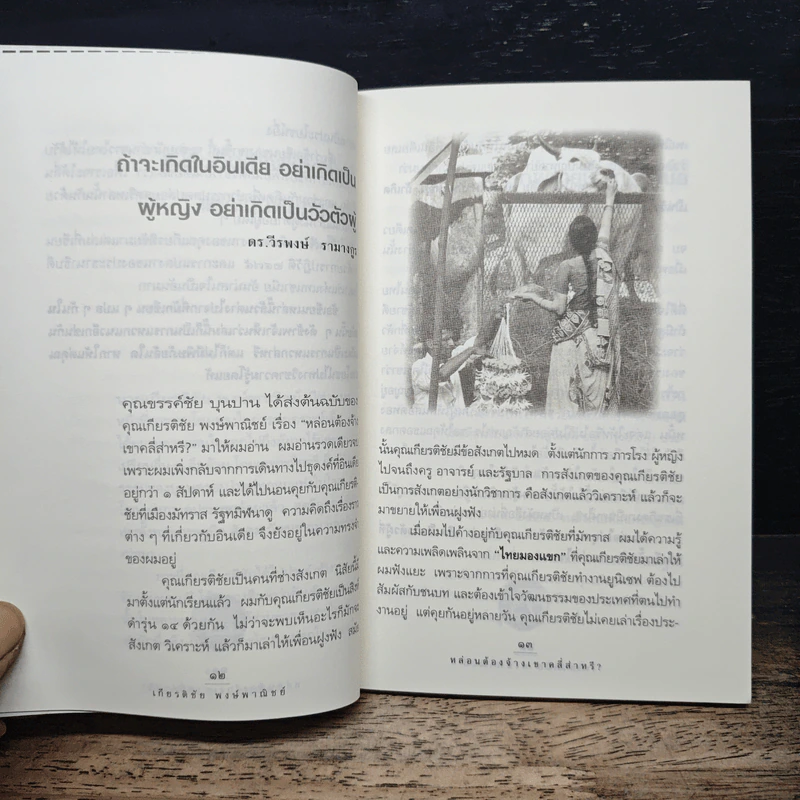 ถ้าจะเกิดในอินเดีย อย่าเกิดเป็น
ผู้หญิง อย่าเกิดเป็นวัวตัวผู้
ดร.วีรพงษ์ รามางกูร
คุณขรรค์ชัย บุนปาน ได้ส่งต้นฉบับของ
คุณเกียรติชัย พงษ์พาณิชย์ เรื่อง “หล่อนต้องจ้าง
เขาคลี่ส่าหรี?” มาให้ผมอ่าน ผมอ่านรวดเดียวจบ
เพราะผมเพิ่งกลับจากการเดินทางไปธุดงค์ที่อินเดีย
อยู่กว่า ๑ สัปดาห์ และได้ไปนอนคุยกับคุณเกียรติ-
ชัยที่เมืองมัทราส รัฐทมิฬนาดู ความคิดถึงเรื่องราว
ต่าง ๆ ที่เกี่ยวกับอินเดีย จึงยังอยู่ในความทรงจำ
ของผมอยู่
คุณเกียรติชัยเป็นคนที่ช่างสังเกต นิสัยนี้มี
มาตั้งแต่นักเรียนแล้ว ผมกับคุณเกียรติชัยเป็นสิงห์
ดำรุ่น ๑๔ ด้วยกัน ไม่ว่าจะพบเห็นอะไรก็มักจะ
สังเกต วิเคราะห์ แล้วก็มาเล่าให้เพื่อนฝูงฟัง สมัย
๑๒
เกียรติชัย พงษ์พาณิชย์
นั้นคุณเกียรติชัยมีข้อสังเกตไปหมด ตั้งแต่นักการ ภารโรง ผู้หญิง
ไปจนถึงครู อาจารย์ และรัฐบาล การสังเกตของคุณเกียรติชัย
เป็นการสังเกตอย่างนักวิชาการ คือสังเกตแล้ววิเคราะห์ แล้วก็จะ
มาขยายให้เพื่อนฝูงฟัง
เมื่อผมไปค้างอยู่กับคุณเกียรติชัยที่มัทราส ผมได้ความรู้
และความเพลิดเพลินจาก “ไทยมองแขก” ที่คุณเกียรติชัยมาเล่าให้
ผมฟังแยะ เพราะจากการที่คุณเกียรติชัยทำงานยูนิเซฟ ต้องไป
สัมผัสกับชนบท และต้องเข้าใจวัฒนธรรมของประเทศที่ตนไปทำ
งานอยู่ แต่คุยกันอยู่หลายวัน คุณเกียรติชัยไม่เคยเล่าเรื่องประ-
๑๓
หล่อนต้องจ้างเขาคลี่ส่าหรี?